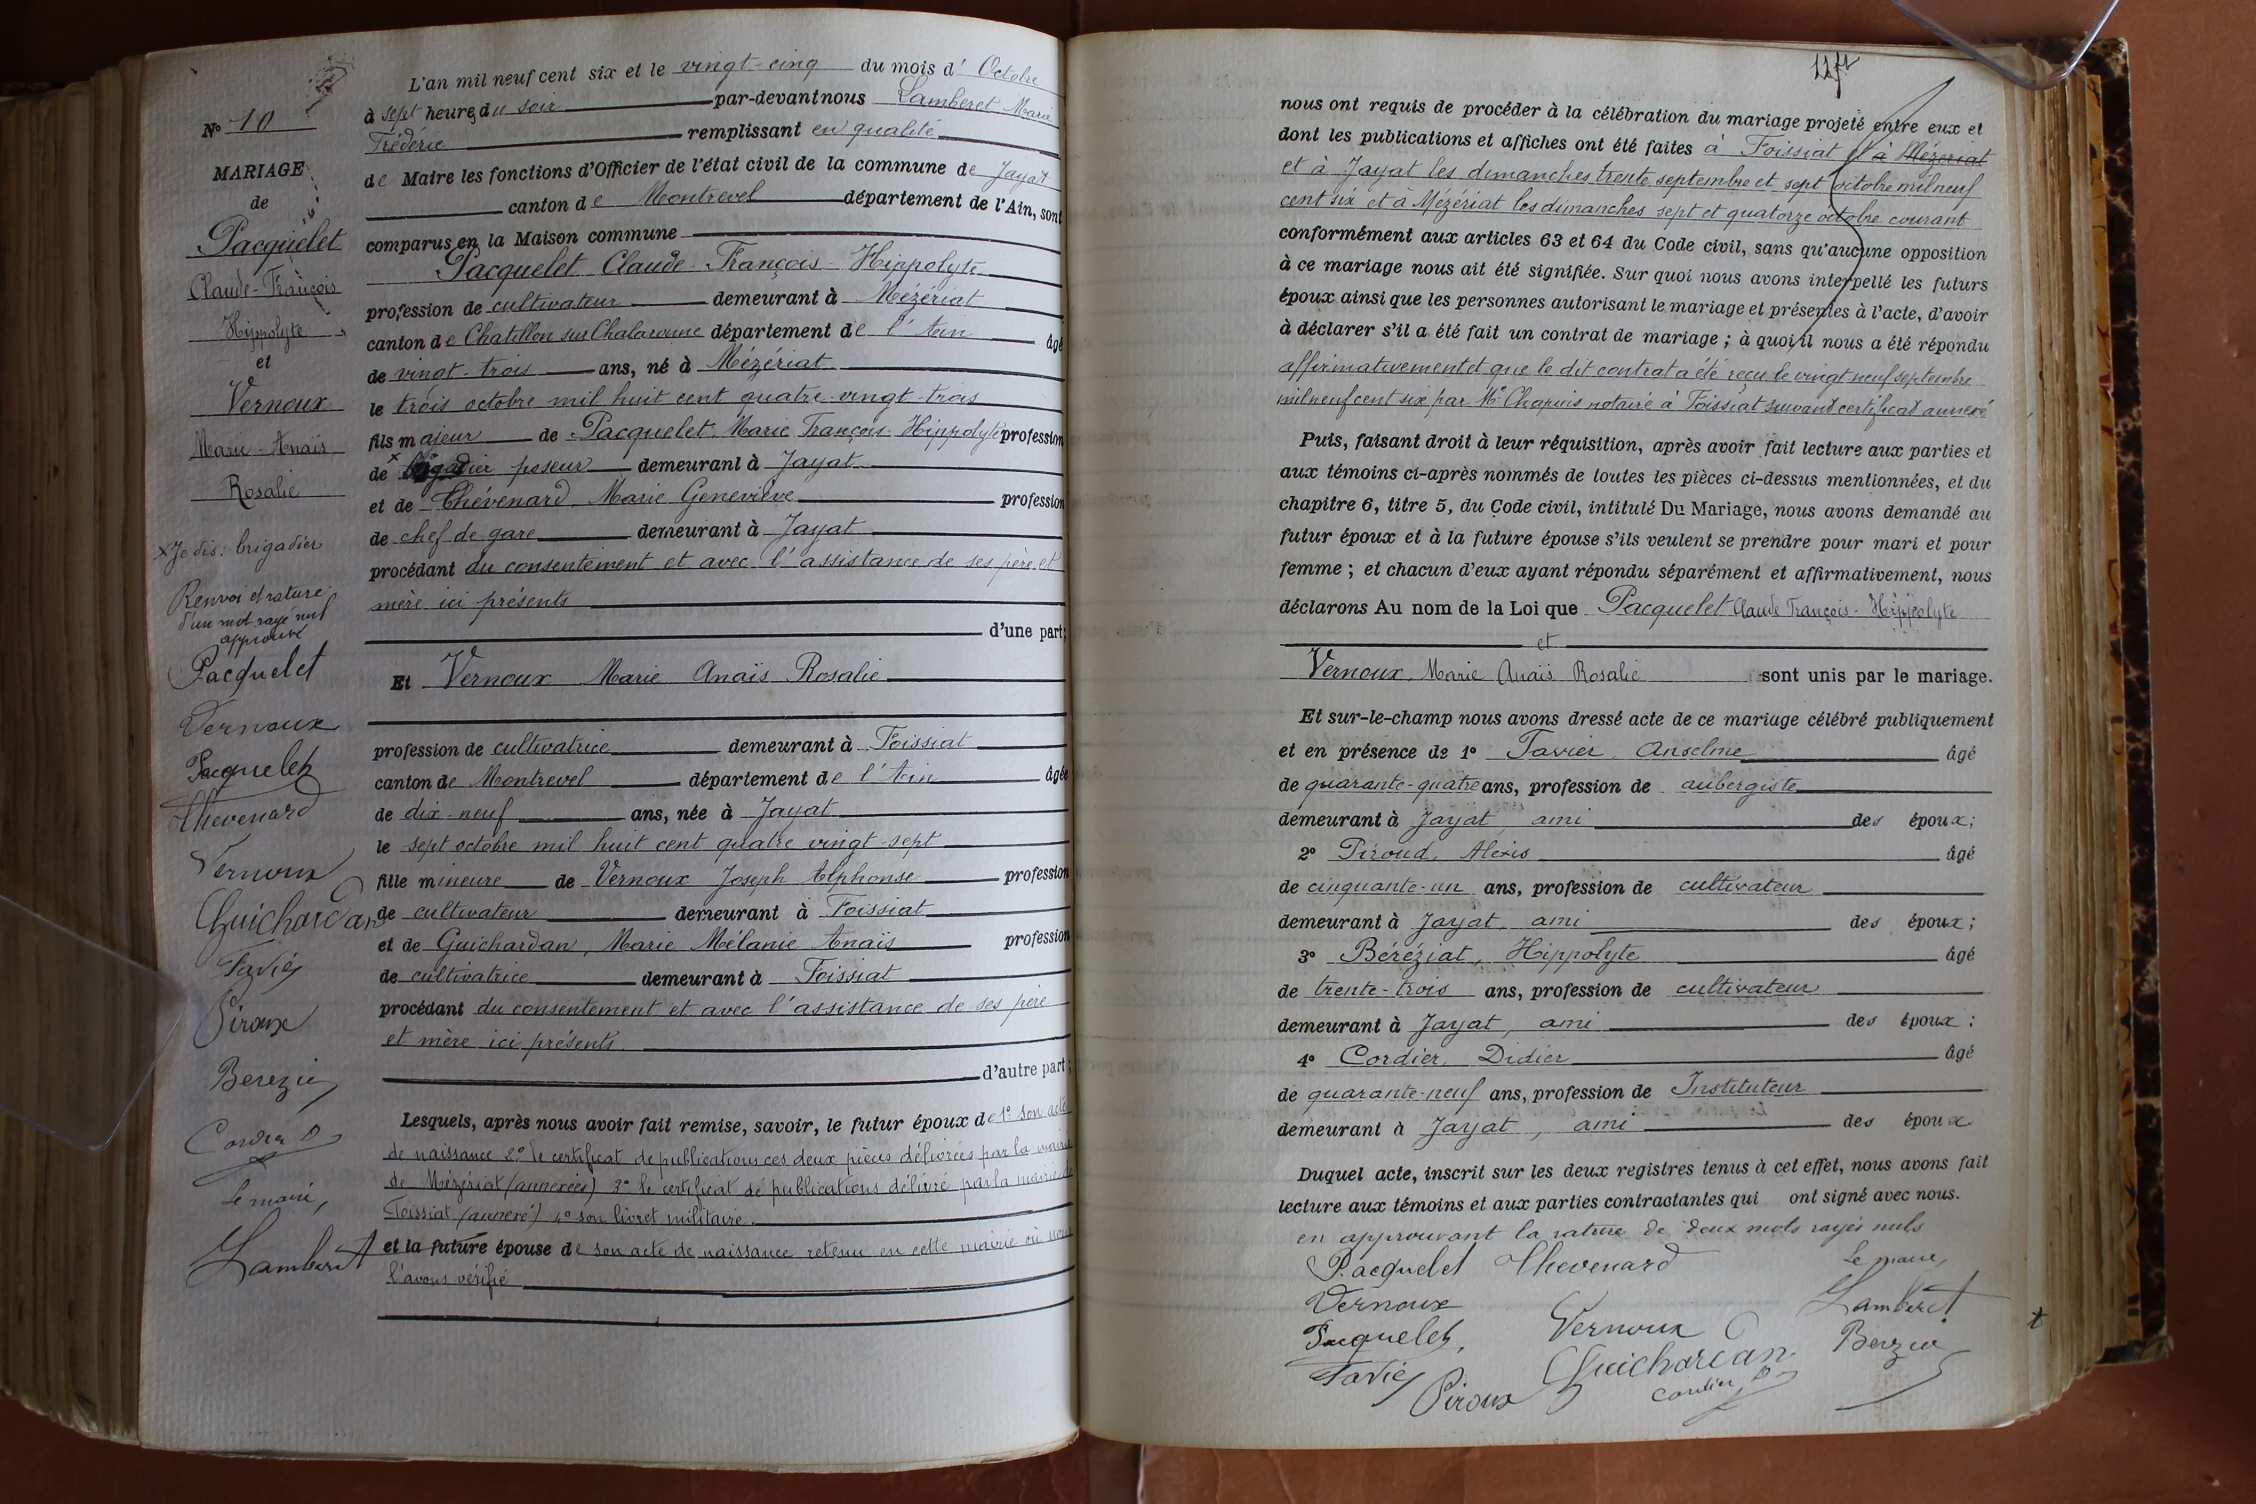 L'an mil neuf cent six et le vingt-cinq du mois d' Octobre
à sept heures du soir par-devant nous Lamberet Marie
Frédéric remplissant en qualité
de Maire les fonctions d'Officier de l'état civil de la commune de Jayat
canton de Montrevel département de l'Ain, sont
comparus en la Maison commune
Pacquelet Claude-François-Hippolyte
profession de cultivateur demeurant à Mézériat
canton de Chatillon sur Chalaronne département de l'Ain âgé
de vingt-trois ans, né à Mézériat
le trois octobre mil huit cent quatre-vingt-trois
fils majeur de Pacquelet Marie François-Hippolyte profession
de × brigadier poseur demeurant à Jayat
et de Chévenard, Marie Geneviève profession
de chef de gare demeurant à Jayat
procédant du consentement et avec l'assistance de ses père et
mère ici présents
d'une part;
Et Vernoux Marie Anaïs Rosalie
profession de cultivatrice demeurant à Foissiat
canton de Montrevel département de l'Ain âgée
de dix-neuf ans, née à Jayat
le sept octobre mil huit cent quatre vingt-sept
fille mineure de Vernoux Joseph Alphonse profession
de cultivateur demeurant à Foissiat
et de Guichardan, Marie Mélanie Anaïs profession
de cultivatrice demeurant à Foissiat
procédant du consentement et avec l'assistance de ses père
et mère ici présents
d'autre part;
Lesquels, après nous avoir fait remise, savoir, le futur époux de 1° son acte
de naissance 2° le certificat de publications ces deux pièces délivrées par la mairie
de Mézériat (annexées) 3° le certificat de publications délivré par la mairie de
Foissiat (annexé) 4° son livret militaire
et la future épouse de son acte de naissance retenu en cette mairie où nous
l'avons vérifié
N° 10
MARIAGE
de
Pacquelet
Claude-François
Hippolyte
et
Vernoux
Marie-Anaïs
Rosalie
× Je dis: brigadier
Renvoi et rature
d'un mot rayé nul
approuvé
Pacquelet
Vernoux
Pacquelet
Chevenard
Vernoux
Guichardan
Tavier
Piroux
Berezia
Cordier D
Le maire,
Lamberet
nous ont requis de procéder à la célébration du mariage projeté entre eux et
dont les publications et affiches ont été faites à Foissiat et à Mézeriat
et à Jayat les dimanches trente septembre et sept octobre mil neuf
cent six et à Mézériat les dimanches sept et quatorze octobre courant
conformément aux articles 63 et 64 du Code civil, sans qu'aucune opposition
à ce mariage nous ait été signifiée. Sur quoi nous avons interpellé les futurs
époux ainsi que les personnes autorisant le mariage et présentes à l'acte, d'avoir
à déclarer s'il a été fait un contrat de mariage ; à quoi il nous a été répondu
affirmativement et que le dit contrat a été reçu le vingt neuf septembre
mil neuf cent six par Me Chapuis notaire à Foissiat suivant certificat annexé
Puis, faisant droit à leur réquisition, après avoir fait lecture aux parties et
aux témoins ci-après nommés de toutes les pièces ci-dessus mentionnées, et du
chapitre 6, titre 5, du Code civil, intitulé Du Mariage, nous avons demandé au
futur époux et à la future épouse s'ils veulent se prendre pour mari et pour
femme ; et chacun d'eux ayant répondu séparément et affirmativement, nous
déclarons Au nom de la Loi que Pacquelet Claude François-Hippolyte
et
Vernoux, Marie Anaïs Rosalie sont unis par le mariage.
Et sur-le-champ nous avons dressé acte de ce mariage célébré publiquement
et en présence de 1° Tavier Anselme âgé
de quarante-quatre ans, profession de aubergiste
demeurant à Jayat, ami des époux;
2° Piroud, Alexis âgé
de cinquante-un ans, profession de cultivateur
demeurant à Jayat, ami des époux;
3° Béréziat, Hippolyte âgé
de trente-trois ans, profession de cultivateur
demeurant à Jayat, ami des époux;
4° Cordier, Didier âgé
de quarante-neuf ans, profession de Instituteur
demeurant à Jayat, ami des époux
Duquel acte, inscrit sur les deux registres tenus à cet effet, nous avons fait
lecture aux témoins et aux parties contractantes qui ont signé avec nous.
en approuvant la rature de deux mots rayés nuls
Pacquelet Chevenard Le maire,
Vernoux Lamberet
Pacquelet, Vernoux Berezia
Tavier Guichardan
Piroux Cordier D